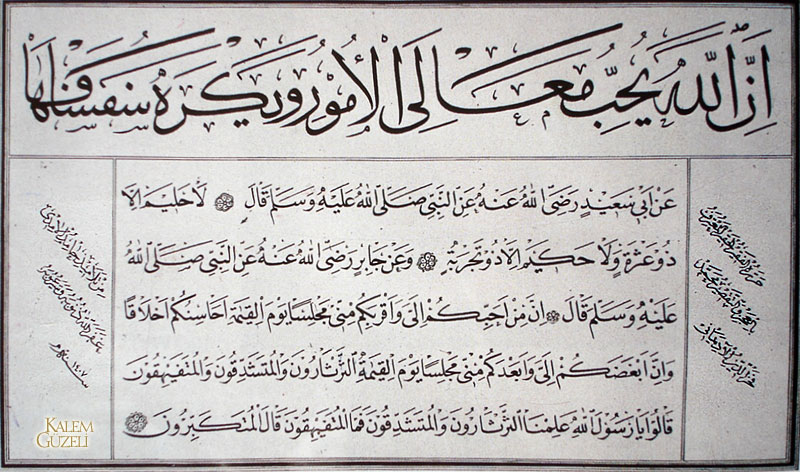 اِنَّ اللّٰهَ يُحِبُّ مَعَالِىَ الْاُمُورِ وَيَكْرَهُ سَفْسَافَهَا
عَنْ اَبِى سَعِيْدٍ رَضِىَ اللّٰهُ عَنْهُ عَنِ النَّبِىِّ صَلَّى اللّٰهُ عَلَيْهِ وَسَلَّمَ قَالَ لَا حَلِيْمَ اِلَّا
ذُو عَثْرَةٍ وَلَا حَكِيْمَ اِلَّا ذُو تَجْرِبَةٍ وَعَنْ جَابِرٍ رَضِىَ اللّٰهُ عَنْهُ عَنِ النَّبِىِّ صَلَّى اللّٰهُ
عَلَيْهِ وَسَلَّمَ قَالَ اِنَّ مِنْ اَحَبِّكُمْ اِلَىَّ وَاَقْرَبِكُمْ مِنِّى مَجْلِسًا يَوْمَ الْقِيٰمَةِ اَحَاسِنُكُمْ اَخْلَاقًا
وَاِنَّ اَبْغَضَكُمْ اِلَىَّ وَاَبْعَدَكُمْ مِنِّى مَجْلِسًا يَوْمَ الْقِيٰمَةِ الثَّرْثَارُونَ وَالْمُتَشَدِّقُونَ وَالْمُتَفَيْهِقُونَ
قَالُوا يَا رَسُولَ اللّٰهِ عَلِمْنَا الثَّرْثَارُونَ وَالْمُتَشَدِّقُونَ فَمَا الْمُتَفَيْهِقُونَ قَالَ الْمُتَكَبِّرُونَ
سنه ١٤٠٧
KALEM
GÜZELİ